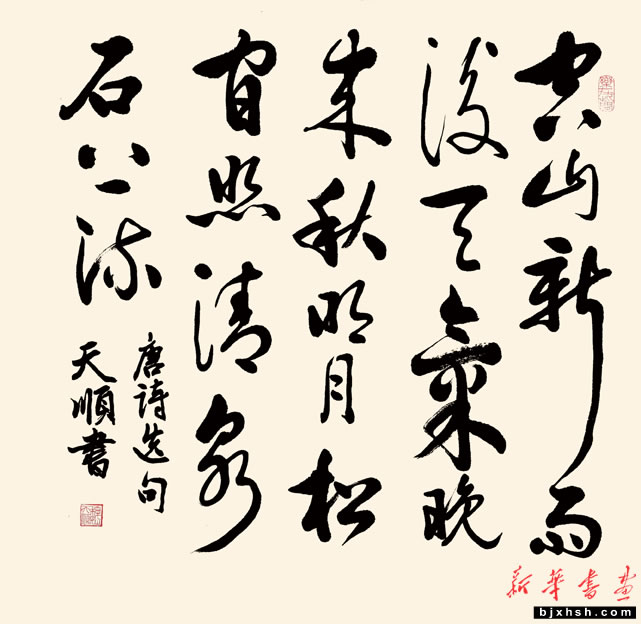 空山新雨
後天氣晚
来秋明月松
间照清泉
石上流
唐诗选句
天順書
新華書画
bjxhsh.com